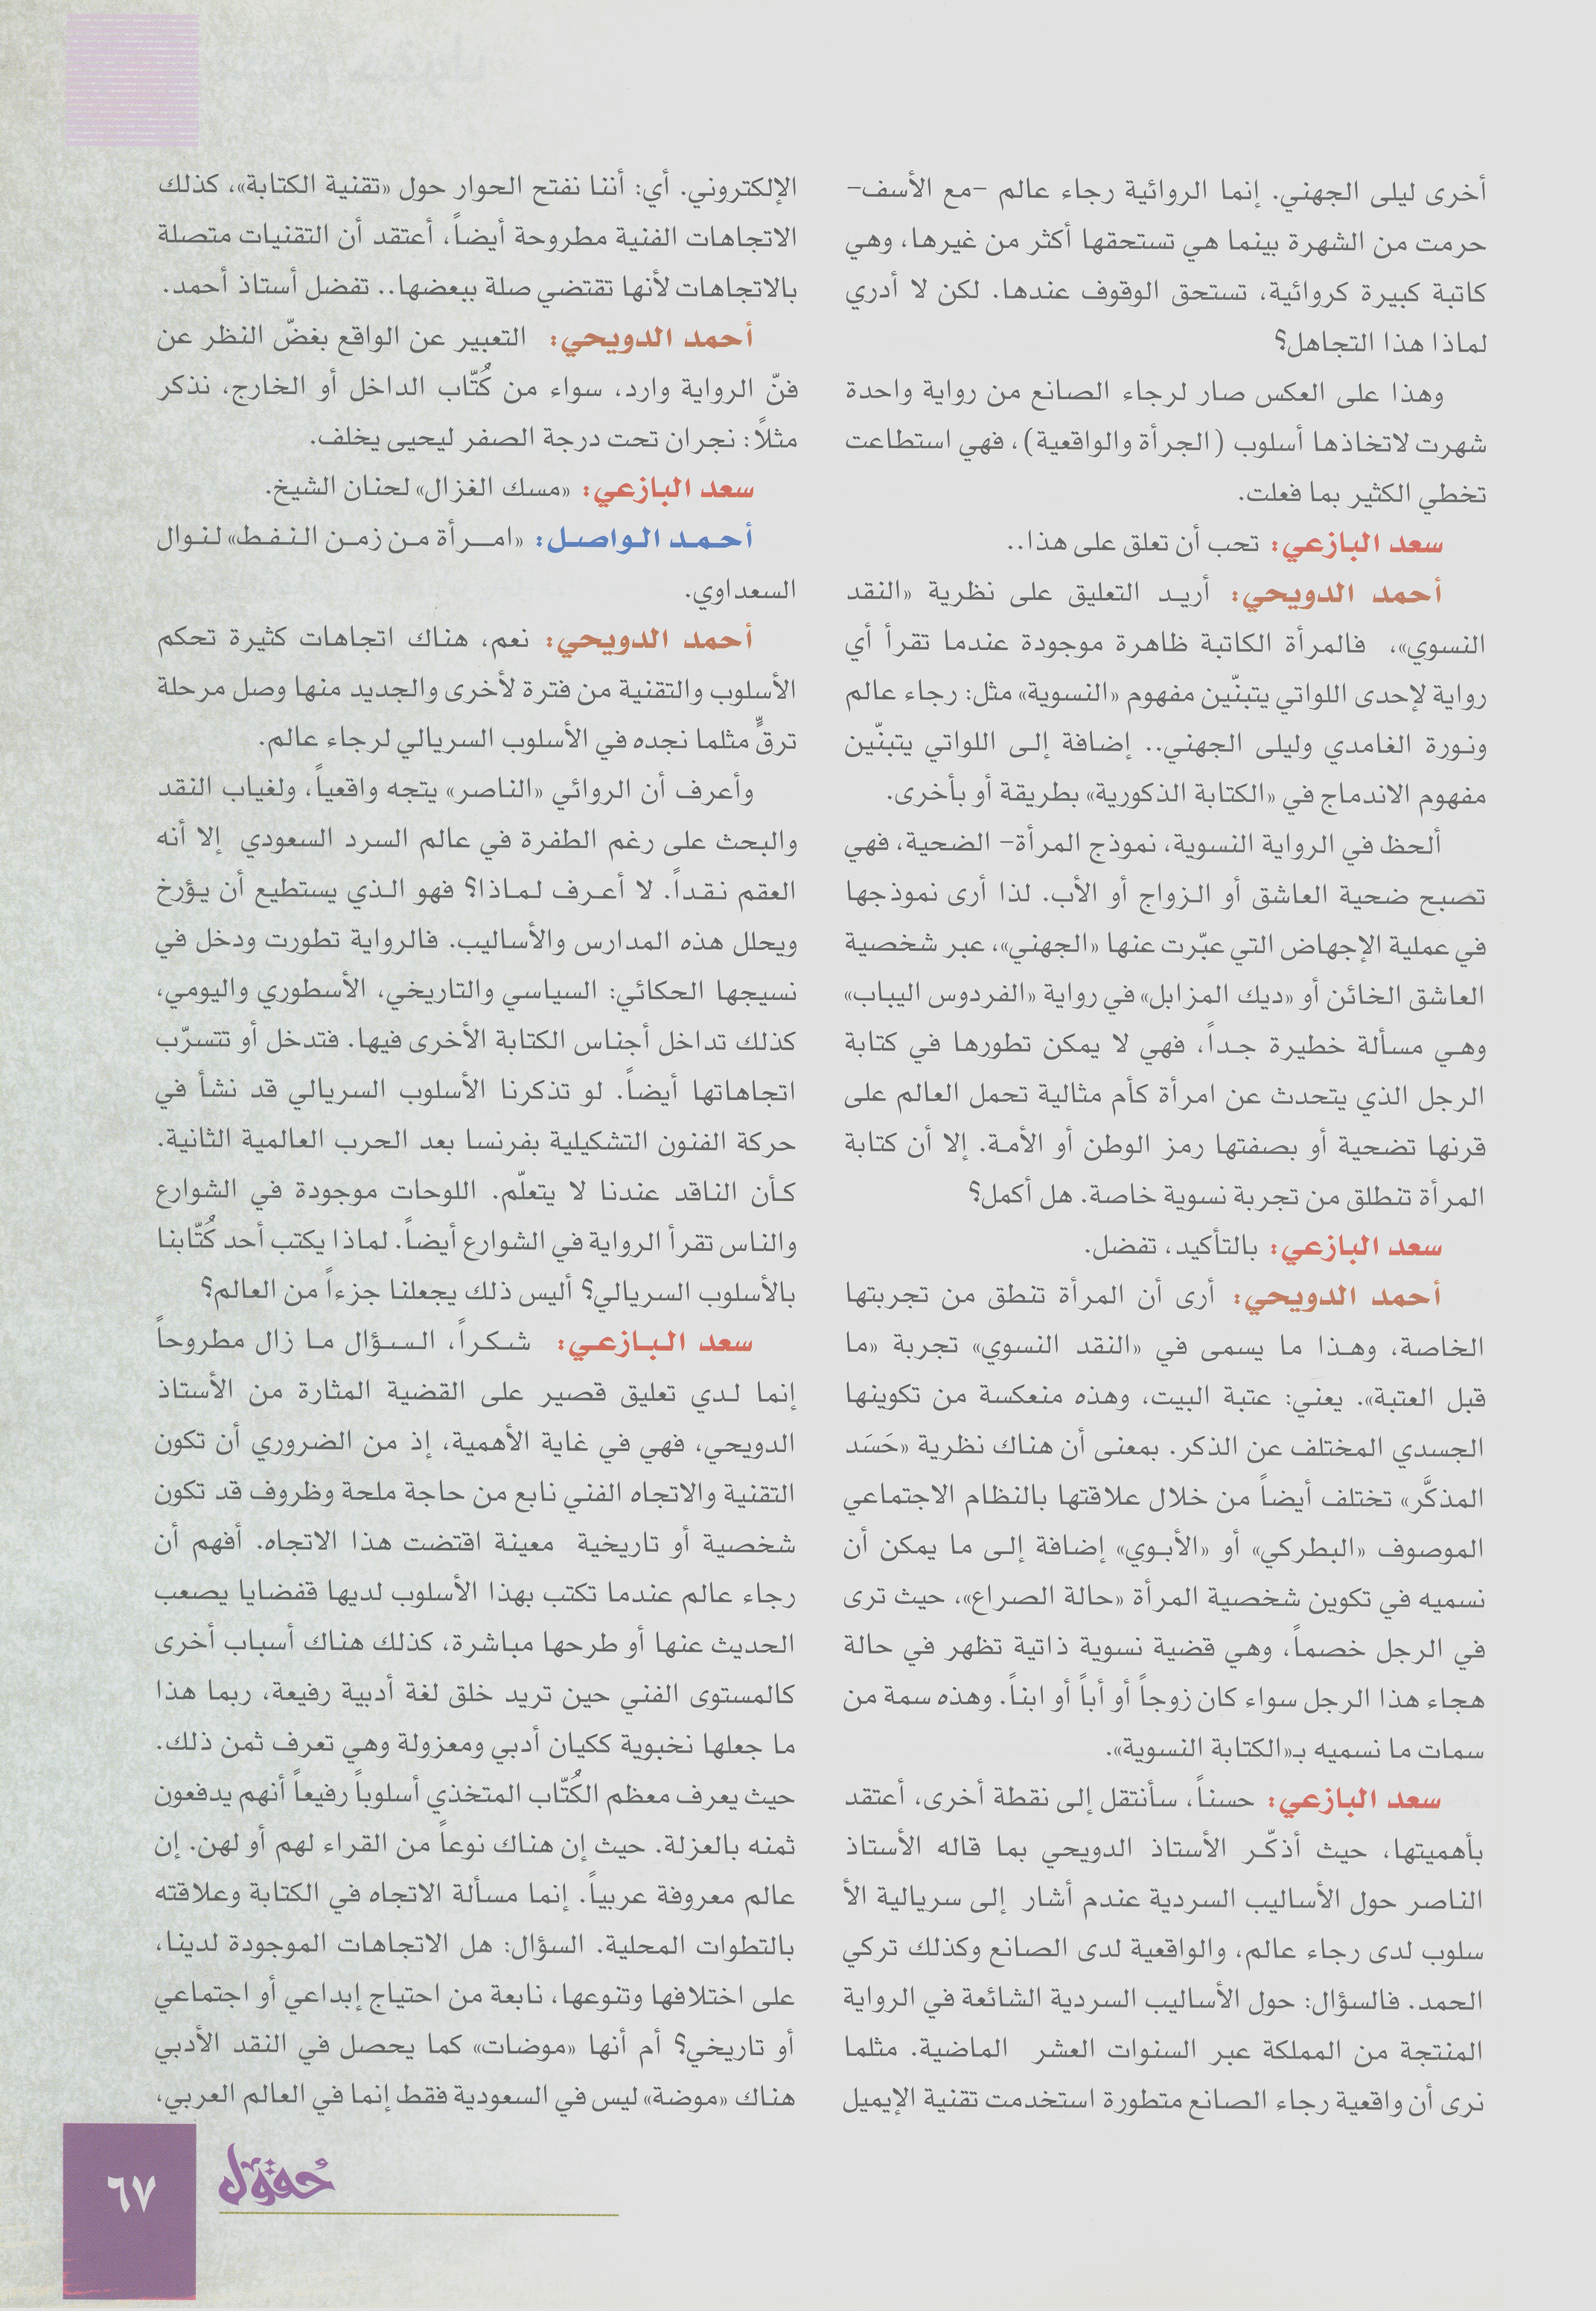 أخرى ليلى الجهني. إنما الروائية رجاء عالم -مع الأسف-
حرمت من الشهرة بينما هي تستحقها أكثر من غيرها، وهي
كاتبة كبيرة كروائية، تستحق الوقوف عندها. لكن لا أدري
لماذا هذا التجاهل؟
وهذا على العكس صار لرجاء الصانع من رواية واحدة
شهرت لاتخاذها أسلوب (الجرأة والواقعية)، فهي استطاعت
تخطي الكثير بما فعلت.
سعد البازعي: تحب أن تعلق على هذا..
أحمد الدويحي: أريد التعليق على نظرية «النقد
النسوي»، فالمرأة الكاتبة ظاهرة موجودة عندما تقرأ أي
رواية لإحدى اللواتي يتبنّين مفهوم «النسوية» مثل: رجاء عالم
ونورة الغامدي وليلى الجهني.. إضافة إلى اللواتي يتبنّين
مفهوم الاندماج في «الكتابة الذكورية» بطريقة أو بأخرى.
ألحظ في الرواية النسوية، نموذج المرأة- الضحية، فهي
تصبح ضحية العاشق أو الزواج أو الأب. لذا أرى نموذجها
في عملية الإجهاض التي عبّرت عنها «الجهني»، عبر شخصية
العاشق الخائن أو «ديك المزابل» في رواية «الفردوس اليباب»
وهي مسألة خطيرة جداً، فهي لا يمكن تطورها في كتابة
الرجل الذي يتحدث عن امرأة كأم مثالية تحمل العالم على
قرنها تضحية أو بصفتها رمز الوطن أو الأمة. إلا أن كتابة
المرأة تنطلق من تجربة نسوية خاصة. هل أكمل؟
سعد البازعي: بالتأكيد، تفضل.
أحمد الدويحي: أرى أن المرأة تنطق من تجربتها
الخاصة، وهذا ما يسمى في «النقد النسوي» تجربة «ما
قبل العتبة». يعني: عتبة البيت، وهذه منعكسة من تكوينها
الجسدي المختلف عن الذكر. بمعنى أن هناك نظرية «حَسَد
المذكَّر» تختلف أيضاً من خلال علاقتها بالنظام الاجتماعي
الموصوف «البطركي» أو «الأبوي» إضافة إلى ما يمكن أن
نسميه في تكوين شخصية المرأة «حالة الصراع»، حيث ترى
في الرجل خصماً، وهي قضية نسوية ذاتية تظهر في حالة
هجاء هذا الرجل سواء كان زوجاً أو أباً أو ابناً. وهذه سمة من
سمات ما نسميه بـ«الكتابة النسوية».
سعد البازعي: حسناً، سأنتقل إلى نقطة أخرى، أعتقد
بأهميتها، حيث أذكّر الأستاذ الدويحي بما قاله الأستاذ
الناصر حول الأساليب السردية عندم أشار إلى سريالية الأ
سلوب لدى رجاء عالم، والواقعية لدى الصانع وكذلك تركي
الحمد. فالسؤال: حول الأساليب السردية الشائعة في الرواية
المنتجة من المملكة عبر السنوات العشر الماضية. مثلما
نرى أن واقعية رجاء الصانع متطورة استخدمت تقنية الإيميل
الإلكتروني. أي: أننا نفتح الحوار حول «تقنية الكتابة»، كذلك
الاتجاهات الفنية مطروحة أيضاً، أعتقد أن التقنيات متصلة
بالاتجاهات لأنها تقتضي صلة ببعضها.. تفضل أستاذ أحمد.
أحمد الدويحي: التعبير عن الواقع بغضّ النظر عن
فنّ الرواية وارد، سواء من كُتّاب الداخل أو الخارج، نذكر
مثلاً: نجران تحت درجة الصفر ليحيى يخلف.
سعد البازعي: «مسك الغزال» لحنان الشيخ.
أحمد الواصل: «امرأة من زمن النفط» لنوال
السعداوي.
أحمد الدويحي: نعم، هناك اتجاهات كثيرة تحكم
الأسلوب والتقنية من فترة لأخرى والجديد منها وصل مرحلة
ترقٍّ مثلما نجده في الأسلوب السريالي لرجاء عالم.
وأعرف أن الروائي «الناصر» يتجه واقعياً، ولغياب النقد
والبحث على رغم الطفرة في عالم السرد السعودي إلا أنه
العقم نقداً. لا أعرف لماذا؟ فهو الذي يستطيع أن يؤرخ
ويحلل هذه المدارس والأساليب. فالرواية تطورت ودخل في
نسيجها الحكائي: السياسي والتاريخي، الأسطوري واليومي،
كذلك تداخل أجناس الكتابة الأخرى فيها. فتدخل أو تتسرّب
اتجاهاتها أيضاً. لو تذكرنا الأسلوب السريالي قد نشأ في
حركة الفنون التشكيلية بفرنسا بعد الحرب العالمية الثانية.
كأن الناقد عندنا لا يتعلّم. اللوحات موجودة في الشوارع
والناس تقرأ الرواية في الشوارع أيضاً. لماذا يكتب أحد كُتّابنا
بالأسلوب السريالي؟ أليس ذلك يجعلنا جزءاً من العالم؟
سعد البازعي: شكراً، السؤال ما زال مطروحاً
إنما لدي تعليق قصير على القضية المثارة من الأستاذ
الدويحي، فهي في غاية الأهمية، إذ من الضروري أن تكون
التقنية والاتجاه الفني نابع من حاجة ملحة وظروف قد تكون
شخصية أو تاريخية معينة اقتضت هذا الاتجاه. أفهم أن
رجاء عالم عندما تكتب بهذا الأسلوب لديها قفضايا يصعب
الحديث عنها أو طرحها مباشرة، كذلك هناك أسباب أخرى
كالمستوى الفني حين تريد خلق لغة أدبية رفيعة، ربما هذا
ما جعلها نخبوية ككيان أدبي ومعزولة وهي تعرف ثمن ذلك.
حيث يعرف معظم الكُتّاب المتخذي أسلوباً رفيعاً أنهم يدفعون
ثمنه بالعزلة. حيث إن هناك نوعاً من القراء لهم أو لهن. إن
عالم معروفة عربياً. إنما مسألة الاتجاه في الكتابة وعلاقته
بالتطوات المحلية. السؤال: هل الاتجاهات الموجودة لدينا،
على اختلافها وتنوعها، نابعة من احتياج إبداعي أو اجتماعي
أو تاريخي؟ أم أنها «موضات» كما يحصل في النقد الأدبي
هناك «موضة» ليس في السعودية فقط إنما في العالم العربي،
حُقول
٦٧